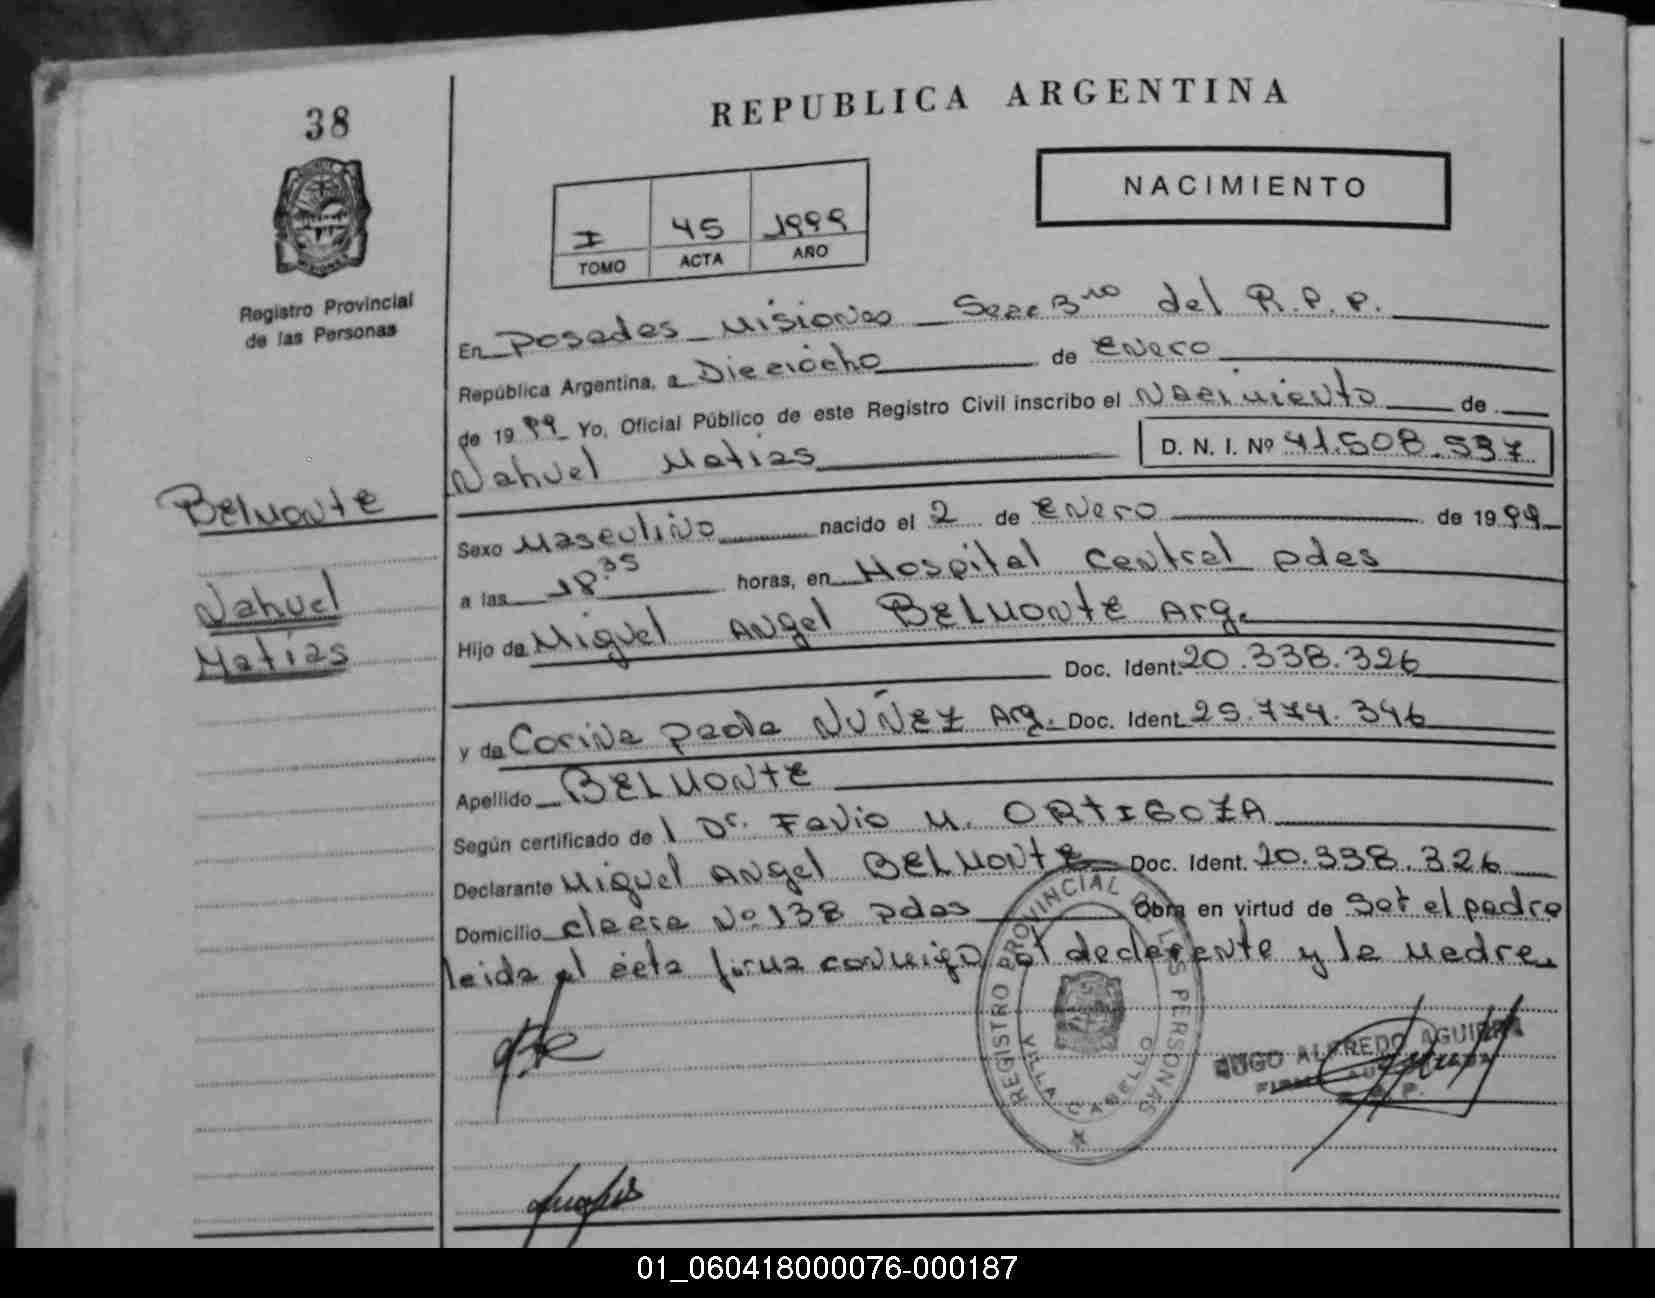 38
REPUBLICA ARGENTINA
NACIMIENTO
I 45 1999
TOMO ACTA AÑO
Registro Provincial
de las Personas
En Posadas Misiones Secc 3ra del R.P.P.
República Argentina, a Dieciocho de Enero
de 1999 Yo, Oficial Público de este Registro Civil inscribo el Nacimiento de
Nahuel Matias D. N. I. Nº 41.508.537
Belmonte
Nahuel
Matias
Sexo Masculino nacido el 2 de Enero de 1999
a las 18.35 horas, en Hospital Central pdas
Hijo de Miguel Angel BELMONTE Arg.
Doc. Ident. 20.338.326
y de Corina Paola NUÑEZ Arg. Doc. Ident. 25.774.346
Apellido BELMONTE
Según certificado de l Dr. Favio M. ORTIGOZA
Declarante Miguel Angel BELMONTE Doc. Ident. 20.338.326
Domicilio Nº 138 pdas Obra en virtud de Ser el padre
leida el acta firma conmigo el declarante y la madre
REGISTRO PROVINCIAL DE LAS PERSONAS
VILLA CABELLO
HUGO ALFREDO AGUIRRE
01_060418000076-000187